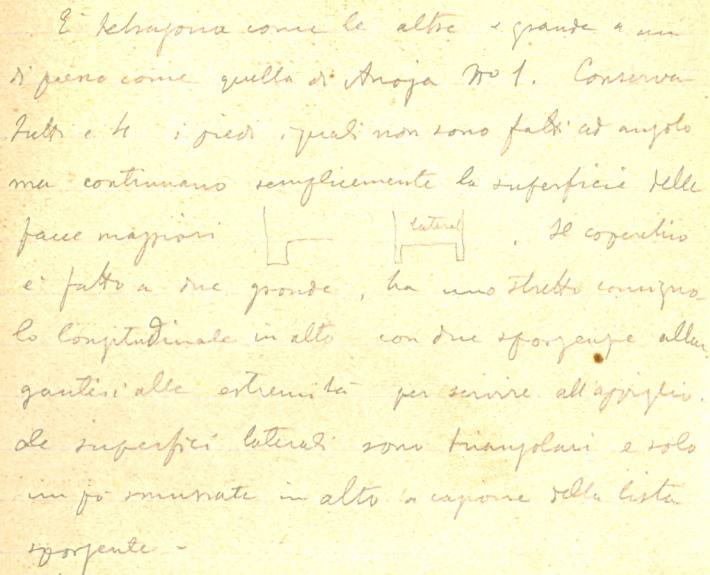 È tetragona come le altre e grande a un
di presso come quella di Anoja No 1. Conserva
tutti e 4 i piedi, i quali non sono fatti ad angolo
ma continuano semplicemente la superficie delle
facce maggiori laterali . Il coperchio
è fatto a due gronde, ha uno stretto comigno-
lo longitudinale in alto con due sporgenze allar-
gantisi alle estremità per servire all'appiglio.
Le superfici laterali sono triangolari e solo
un pò smussate in alto a cagione della lista
sporgente -